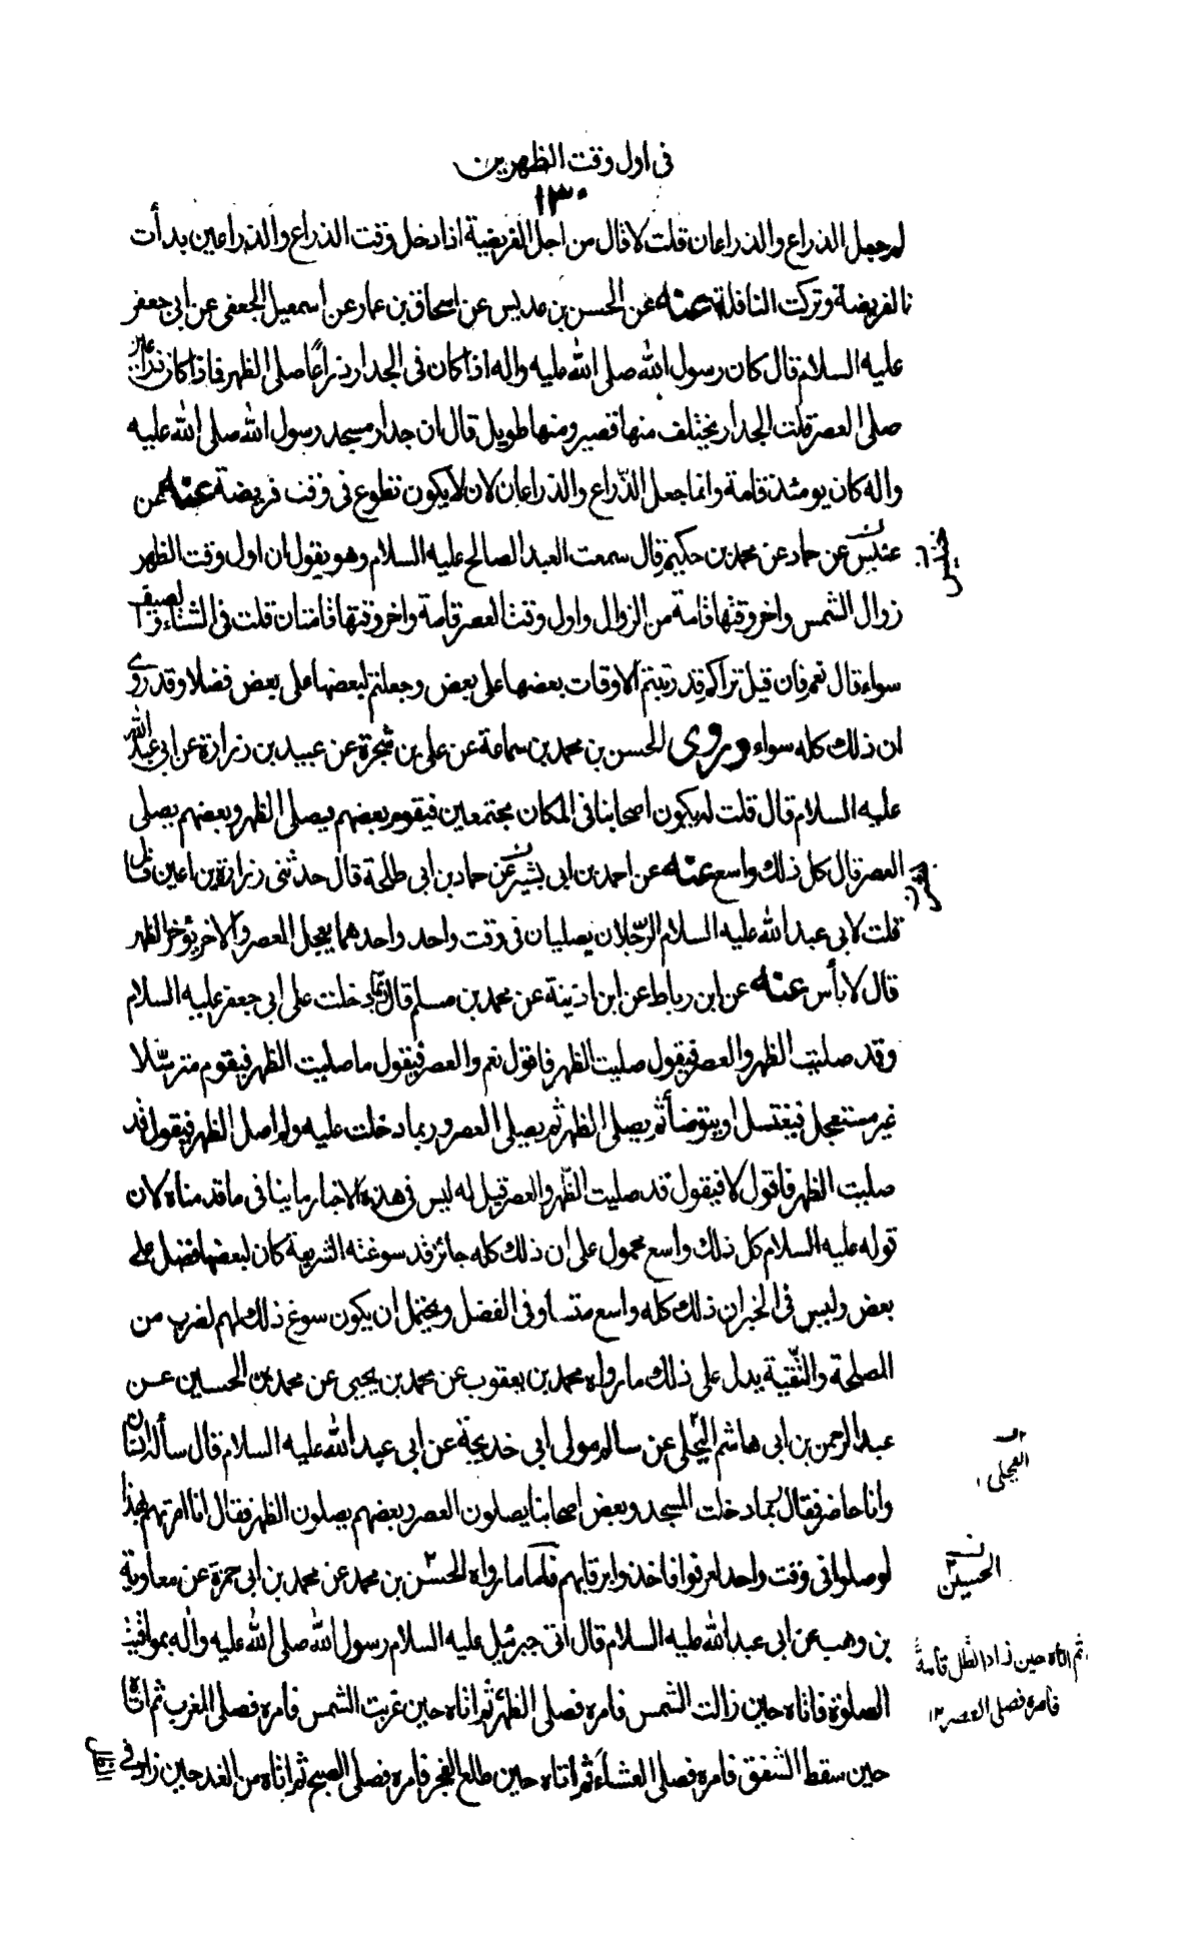 فى اول وقت الظهرين
١٣٠
لم جعل الذراع والذراعان قلت لا قال من اجل الفريضة اذا دخل وقت الذراع والذراعين بدأت
بالفريضة وتركت النافلة عنه عن الحسن بن عديس عن اسحاق بن عمار عن اسمعيل الجعفى عن ابى جعفر
عليه السلام قال كان رسول الله صلى الله عليه واله اذا كان فى الجدار ذراعًا صلى الظهر فاذا كان ذراعين
صلى العصر قلت الجدار يختلف منها قصير ومنها طويل قال ان جدار مسجد رسول الله صلى الله عليه
واله كان يومئذ قامة وانما جعل الذّراع والذراعان لان لا يكون تطوع فى وقت فريضة عنه عن
عنبس عن حماد عن محمد بن حكيم قال سمعت العبد الصالح عليه السلام وهو يقول ان اول وقت الظهر
زوال الشمس واخر وقتها قامة من الزوال واول وقت العصر قامة واخر وقتها قامتان قلت فى الشتاء والصيف
سواء قال نعم فان قيل نراكم قد رتبتم الاوقات بعضها على بعض وجعلتم لبعضها على بعض فضلا وقد روى
ان ذلك كله سواء وروى الحسن بن محمد بن سماعة عن على بن شجرة عن عبيد بن زرارة عن ابى عبد الله
عليه السلام قال قلت له يكون اصحابنا فى المكان مجتمعين فيقوم بعضهم يصلى الظهر وبعضهم يصلى
العصر قال كل ذلك واسع عنه عن احمد بن ابى بشير عن حماد بن ابى طلحة قال حدثنى زرارة بن اعين قال
قلت لابى عبد الله عليه السلام الرّجلان يصليان فى وقت واحد واحدهما يعجل العصر والاخر يؤخر الظهر
قال لا بأس عنه عن ابن رباط عن ابن اذينة عن محمد بن مسلم قال ربما دخلت على ابى جعفر عليه السلام
وقد صليت الظهر والعصر فيقول صليت الظهر فاقول نعم والعصر فيقول ما صليت الظهر فيقوم مترسّلا
غير مستعجل فيغتسل او يتوضأ ثم يصلى الظهر ثم يصلى العصر وربما دخلت عليه ولم اصل الظهر فيقول قد
صليت الظهر فاقول لا فيقول قد صليت الظّهر والعصر قيل له ليس فى هذه الاخبار ما ينافى ما قدمناه لان
قوله عليه السلام كل ذلك واسع محمول على ان ذلك كله جائز قد سوغته الشريعة كان لبعضها فضل على
بعض وليس فى الخبر ان ذلك كله واسع متساو فى الفضل ويحتمل ان يكون سوغ ذلك لهم لضرب من
المصلحة والتّقية يدل على ذلك ما رواه محمد بن يعقوب عن محمد بن يحيى عن محمد بن الحسين عن
عبد الرحمن بن ابى هاشم البجلى عن سالم مولى ابى خديجة عن ابى عبد الله عليه السلام قال سأله انسان
وانا حاضر فقال ربما دخلت المسجد وبعض اصحابنا يصلون العصر وبعضهم يصلون الظهر فقال انا امرتهم بهذا
لو صلوا فى وقت واحد لعرفوا فاخذوا برقابهم فأما ما رواه الحسن بن محمد عن محمد بن ابى حمزة عن معاوية
بن وهب عن ابى عبد الله عليه السلام قال اتى جبرئيل عليه السلام رسول الله صلى الله عليه واله بمواقيت
الصلوة فاتاه حين زالت الشمس فامره فصلى الظهر ثم اتاه حين غربت الشمس فامره فصلى المغرب ثم اتاه
حين سقط الشفق فامره فصلى العشاء ثم اتاه حين طلع الفجر فامره فصلى الصبح ثم اتاه من الغد حين زاد فى
العجلى
الحسين
ثم اتاه حين زاد الظل قامة
فامره فصلى العصر ١٢